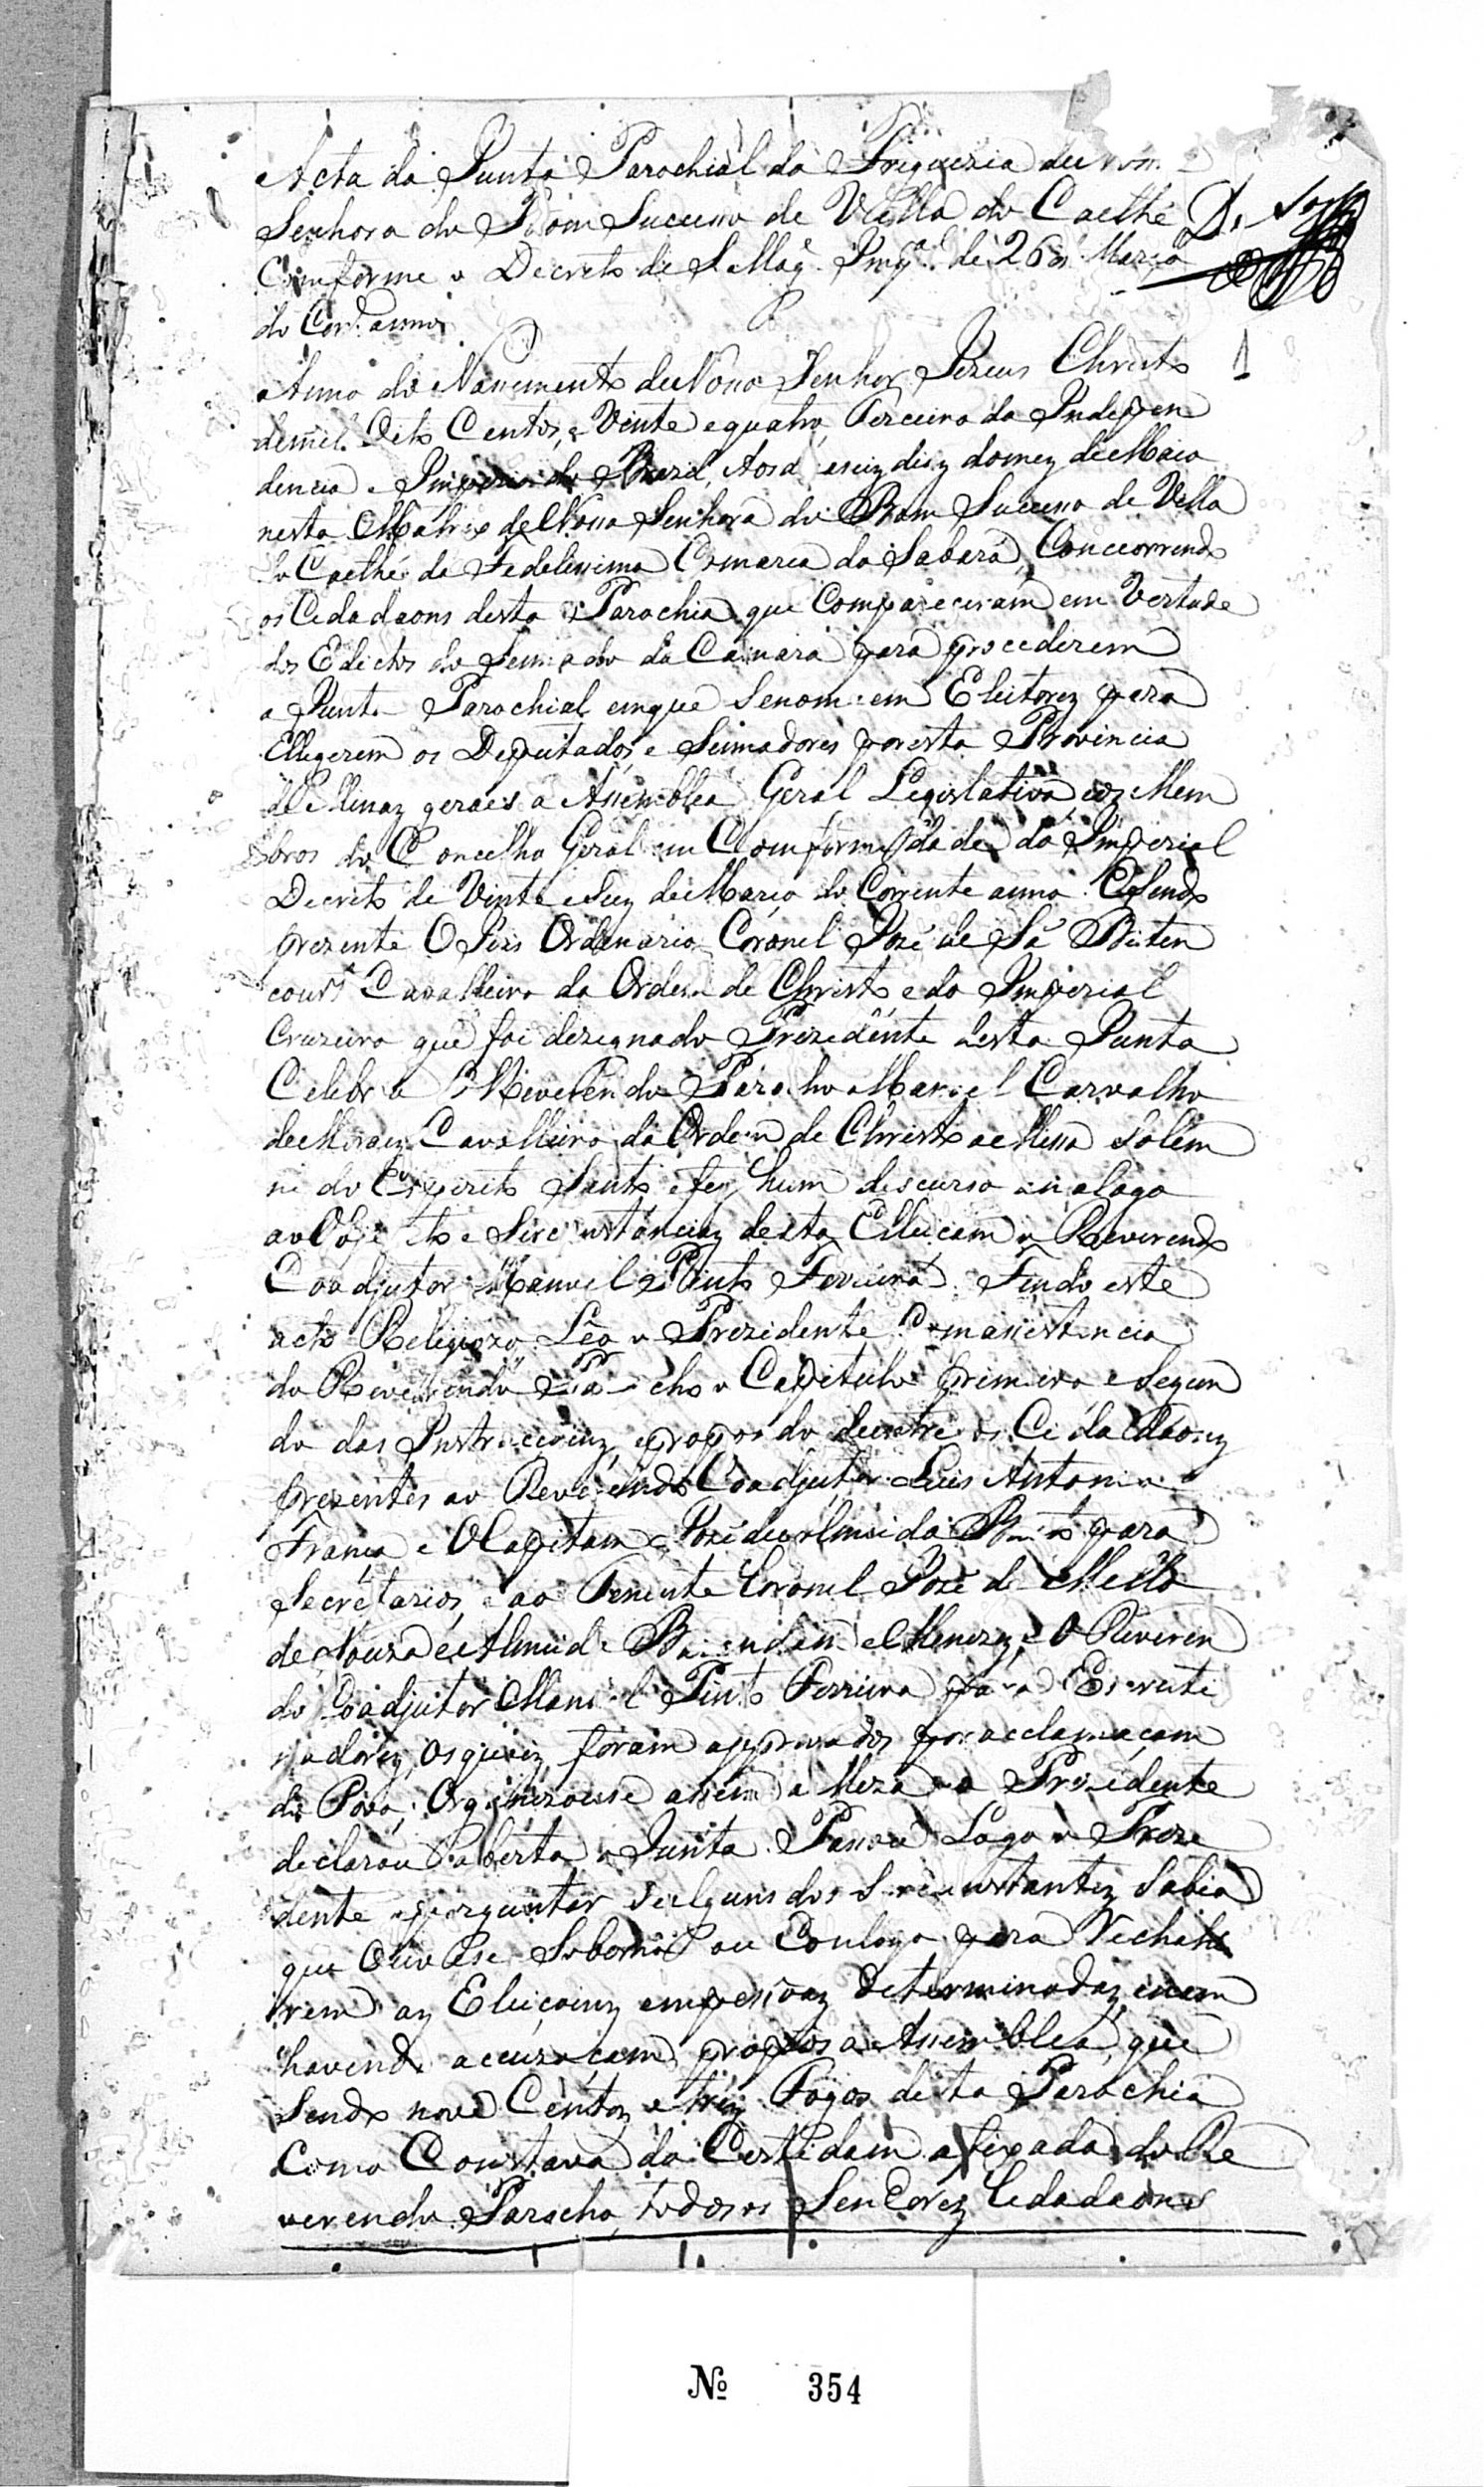 Acta da Junta Parochial da Freguezia de
Senhora do Bom Sucesso de Villa do Caethé
Comforme o Decreto de S. Mag. Impal. de 26 de Março
do Corr. anno
1
Anno do Nascimento de Nosso Senhor Jezus Christo
demil Oito Centos, e Vinte e quatro, Terceiro da Indepen
dencia e Imperio do Brazil, Aos deseiz diaz do mez de Maio
nesta Matriz de Nossa Senhora do Bom Sucesso de Villa
do Caethé da Fedelissima Comarca do Sabará, Concorrendo
os Cedadaons desta Parochia que Compareceram em Vertude
dos Edictos do Sennado da Camara para procederem
a Junta Parochial emque Senomeem Eleitorez para
Ellegerem os Deputados, e Sennadores poresta Provincia
de Minaz geraes a Assemblea Geral Legislativa eoz Mem
bros do Concelho Geral em Comformidade do Imperial
Decreto de Vinte e Seiz de Março do Corrente anno. E Sendo
prezente O Juis Ordenario Coronel José de Sá Biten
court Cavalleiro da Ordem de Christo e do Imperial
Cruzeiro que foi dezegnado Prezidente desta Junta
Celebrou O Reverendo Parocho Manoel Carvalho
de Moraez Cavalleiro da Ordem de Christo a Missa Solem
ne do Espirito Santo e fez hum descurso analogo
ao Objecto e Sircunstanciaz desta Elleiçam o Reverendo
Coadjutor Manoel Pinto Ferreira. Findo este
acto Religiozo Lêo o Prezidente Comassistencia
do Reverendo Parocho o Capitulo primeiro e Segun
do das Instrucçoinz, e propos do dentre os Cidadaonz
prezentes ao Reverendo Coadjutor Luis Antonio
França e O Capitam José de Almeida para
Secretarios, e ao Tenente Coronel José de Mello
de Souza e Almeida e Menezez, e O Reveren
do Coadjutor Manoel Pinto Ferreira para Escruti
nadorez, os quaiz foram approvados por acclamaçam
do Povo; Organizouse assim a Meza e o Prezidente
declarou aberta a Junta. Passou Logo o Preze
dente aporguntar Se alguns dos Sircunstantez Sabia
que Ouvese Soborno ou Conloyo para
rem az Eleiçoinz empessoaz determinadaz, enam
havendo accuzaçam propos a Assemblea, que
Sendo nove Centoz e trez Fogos desta Parochia
Como Constava da Certidam afixada do Re
verendo Parocho, todos os Senhorez Cedadaons
Nº 354